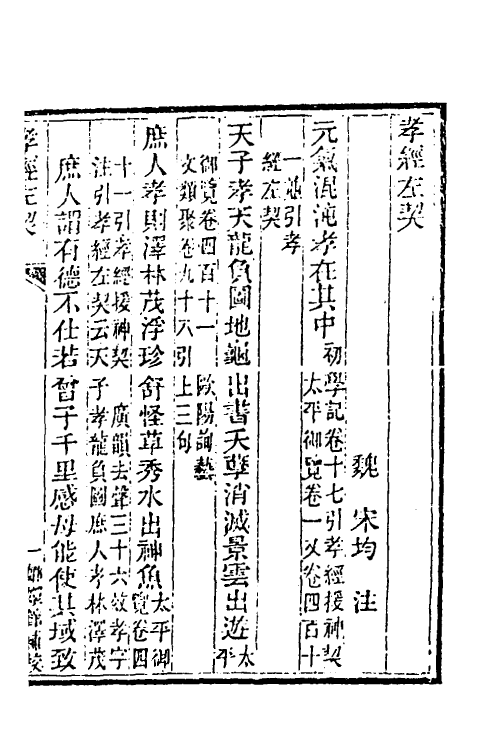 孝經左契
魏 宋均 注
元氣混沌孝在其中
初學記卷十七引孝經援神契
太平御覽卷一又卷四百十
一並引孝
經左契
天子孝天龍負圖地龜出書天孽消滅景雲出遊
太
平
御覽卷四百十一 歐陽詢藝
文類聚卷九十六引上三句
庶人孝則澤林茂浮珍舒怪草秀水出神魚
太平御
覽卷四
十一引孝經援神契 廣韻去聲三十六效孝字
注引孝經左契云天子孝龍負圖庶人孝林澤茂
庶人謂有德不仕若曾子千里感母能使其域致
孝經左契
一
嫏嬛館補校